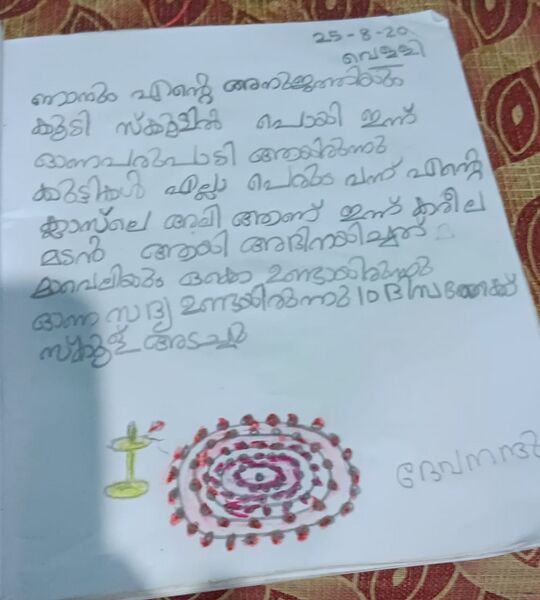 25-8-20
വെള്ളി
ഞാനും എന്റെ അനുജത്തിയും
കൂടി സ്കൂളിൽ പോയി ഇന്ന്
ഓണപരുപാടി ആയിരുന്നു
കുട്ടികൾ എല്ലാ പെരും വന്ന് എന്റെ
ക്ലാസ്ലെ അലി ആണ് ഇന്ന് കരീല
മടൻ ആയി അഭിനയിച്ചത്
മാവേലിയും ഒക്കെ ഉണ്ടായിരുന്നു
ഓണ സദ്യ ഉണ്ടായിരുന്നു 10 ദിസത്തേക്ക്
സ്കൂള് അടച്ചു
ദേവനന്ദു